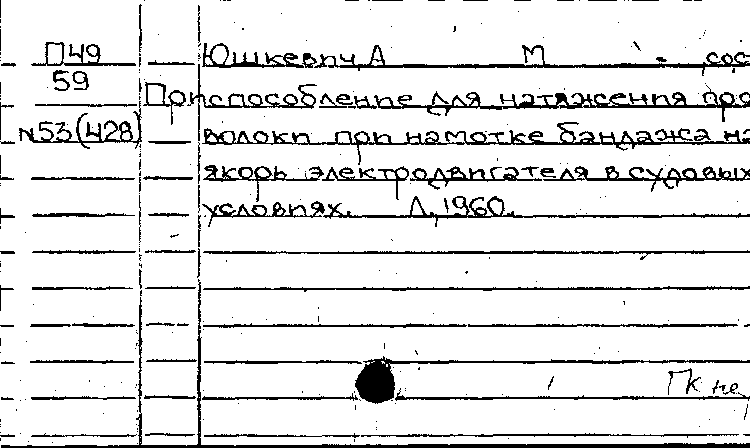 П49 Юшкевич, А М - сос
59 Приспособление для натяжения про
N53(428) волоки при намотке бандажа на
якорь электродвигателя в судовых
условиях. Л, 1960.
ГК не